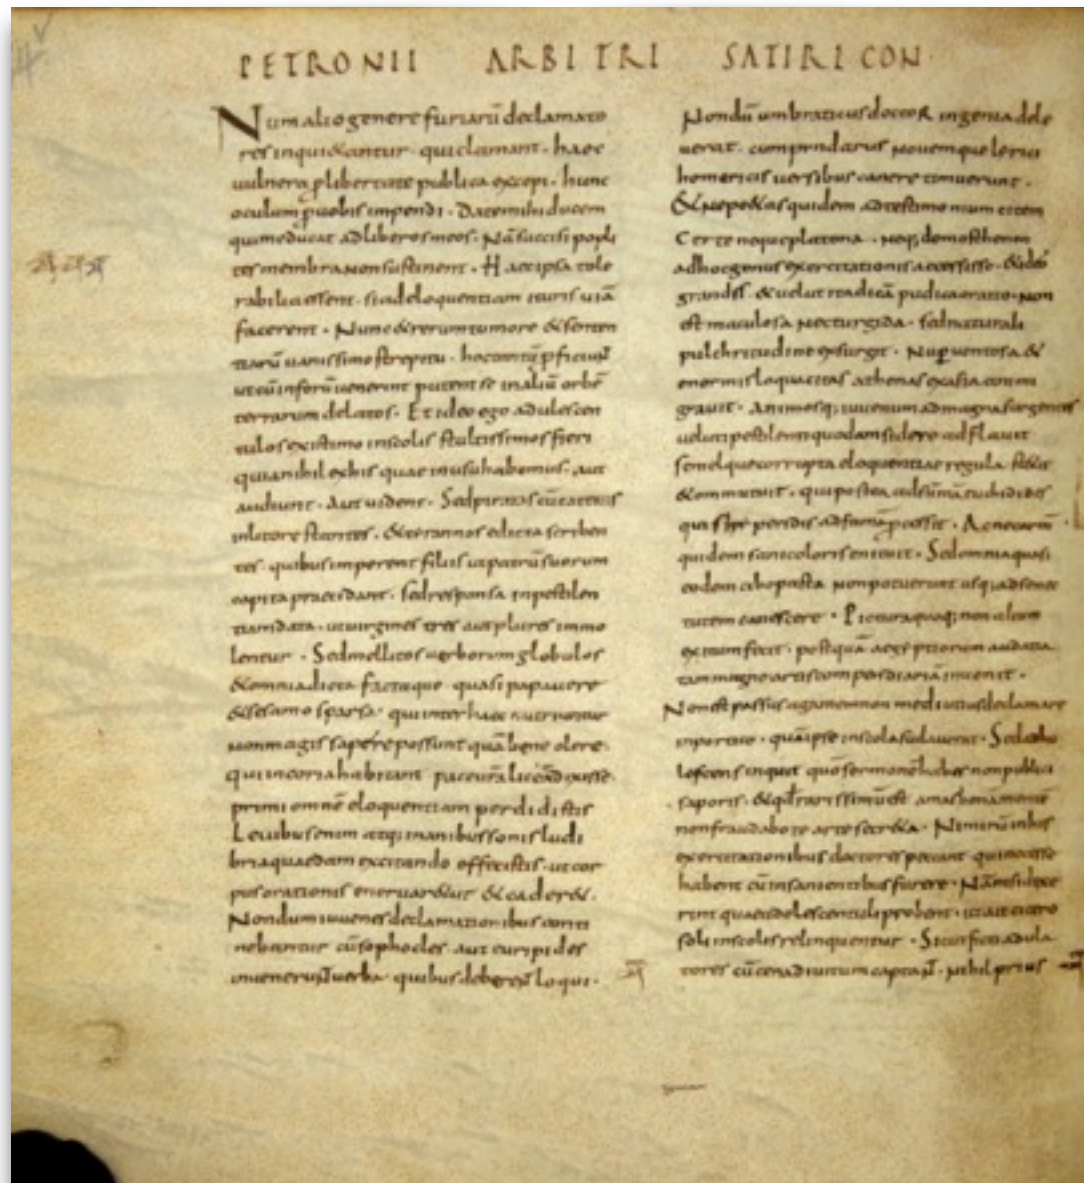 PETRONII ARBITRI SATIRICON
Num alio genere furiarū declamato
res inqui&antur · qui clamant · haec
uulnera ꝓ libertate publica excepi · hunc
oculum ꝓ uobis impendi · Date mihi ducem
qui me ducat ad liberos meos · Nā succisi popli
tes membra non sustinent · Haec ipsa tole
rabilia essent · si ad eloquentiam ituris uiā
facerent · Nunc & rerum tumore & senten
tiarū uanissimo strepitu · hoc
ut cū in forū uenerint putent se in aliū orbē
terrarum delatos · Et ideo ego adulescen
tulos existimo in scolis stultissimos fieri
quia nihil ex his quae in usu habemus · aut
audiunt · aut uident · Sed piratas cū catenis
in litore stantes · & tirannos edicta scriben
tes · quibus imperent filiis ut patrū suorum
capita praecidant · sed responsa in pestilen
tiam data · ut uirgines tres aut plures immo
lentur · Sed mellitos uerborum globulos
& omnia dicta factaque quasi papauere
& sesamo sparsa · qui inter haec nutriuntur
non magis sapere possunt quā bene olere ·
qui in coria habitant pace
primi omnē eloquentiam perdidistis
Leuibus enim atq; inanibus sonis ludi
bria quaedam excitando effecistis · ut cor
pus orationis eneruar&ur & cader& ·
Nondum iuuenes declamationibus conti
nebantur cū sophocles aut euripides
inuenerunt uerba quibus deberent loqui ·
Nondū umbraticus doctor ingenia dele
uerat · cum pindarus nouemque lirici
homericis uersibus canere timuerunt ·
Certe neque platona · neq; demosthenen
ad hoc genus exercitationis accessisse ·
grandis · & ut ita dicā pudica oratio · non
est maculosa nec turgida · sed naturali
pulchritudine exsurgit · Nuper uentosa &
enormis loquacitas athenas ex asia commi
grauit · Animosq; iuuenum ad magna surgentes
ueluti pestilenti quodam sidere adflauit
semelque corrupta eloquentiae regula st&it
& ommutuit · qui postea ad sūmā tuchididis
qui famā ꝓcessit · Ac ne carmē
quidem sani coloris enituit · Sed omnia quasi
eodem cibo pasta non potuerunt usq; ad senec
tutem canescere · Pictura quoq; non alium
exitum fecit · postquā aegiptiorum audatia
tam magne artis compendiariā inuenit ·
Non est passus agamemnon me diutius declamare
in portico · quā ipse in scola sudauerat · Sed adu
lescens inquit quō sermonē habes non publici
saporis · & qd rarissimū est amas bonā mentē
non fraudabo te arte secr&a · in his
exercitationibus doctores peccant qui necesse
habent cū insanientibus furere · Nā nisi dixe
rint quae adolescentuli probent · ut ait cicero
soli in scolis relinquentur · Sicut ficti adula
tores cū cenas diuitum captant · nihil prius